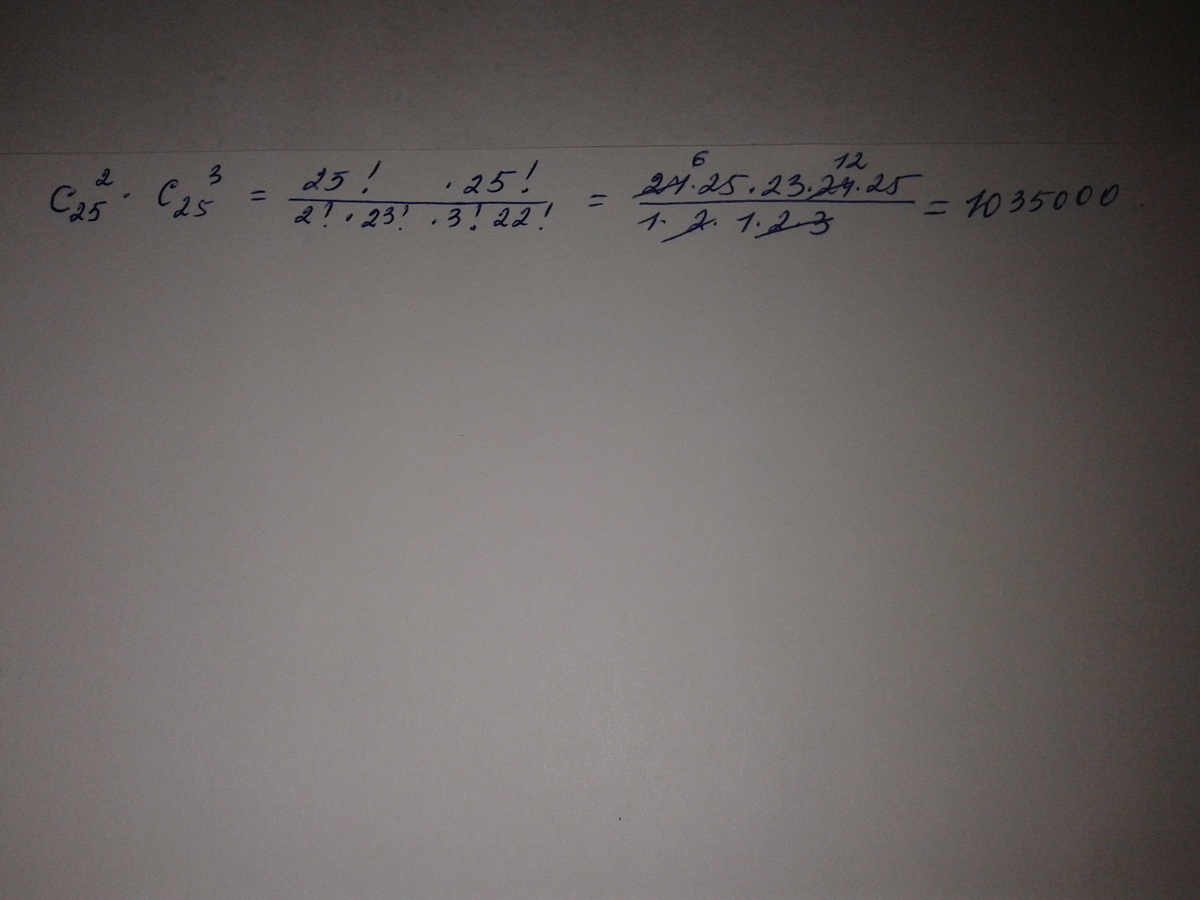 C₂₅² · C₂₅³ = (25! · 25!)/(2! · 23! · 3! 22!) = (24 · 25 · 23 · 24 · 25)/(1 · 2 · 1 · 2 · 3) = 1035000.
6 12